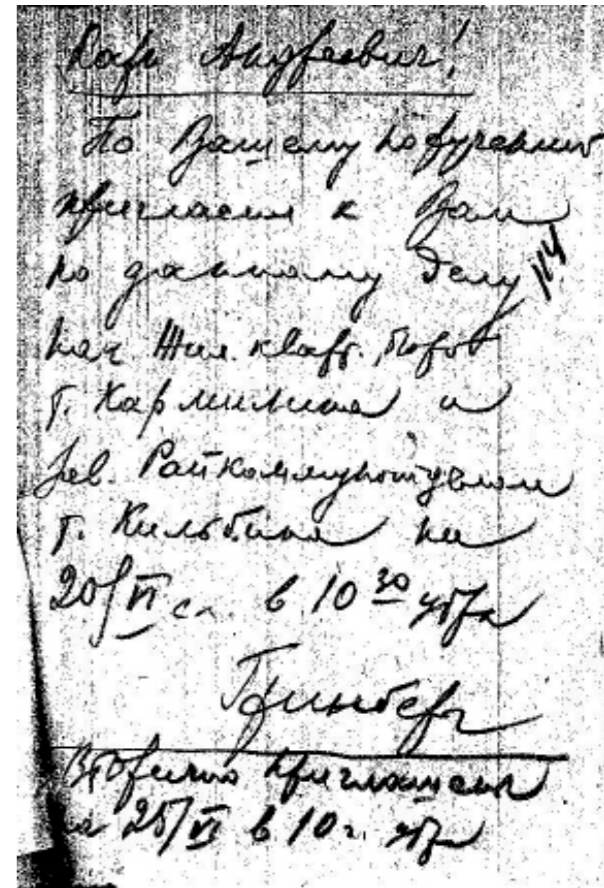 Карл Андреевич!
По Вашему поручению
пригласил к Вам
по данному делу
нач. Жил. кварт.
т. Кармильина и
Зав. Райкоммунотделом
т. Кильбина на
20/VI с. в 10 30 утра
Гринберг
Вторично приглашены
на 25/VI в 10 ч. утра